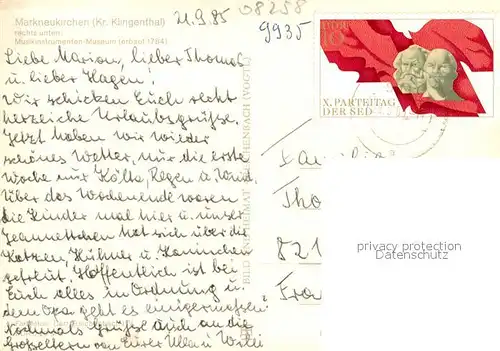 Markneukirchen (Kr. Klingenthal)
rechts unten:
Musikinstrumenten-Museum (erbaut 1784)
21.9.85
08258
9935
Liebe Marion, lieber Thomas
u. lieber Hagen!
Wir schicken Euch recht
herzliche Urlaubsgrüsse.
Jetzt haben wir wieder
schönes Wetter, nur die erste
Woche nur Kälte, Regen u. Wind.
Über das Wochenende waren
die Kinder mal hier u. unser
Jeannettchen hat sich über die
Katzen, Hühner u. Kaninchen
gefreut. Hoffentlich ist bei
Euch alles in Ordnung u.
dem Opa geht es einigermaßen?
Nochmals Grüsse auch an die
Großeltern von Eurer Ulla u. Willi
BILD UND HEIMAT REICHENBACH (VOGTL)
DDR
10
X. PARTEITAG
DER SED
Familie
Tho
821
Fra
privacy protection
Datenschutz